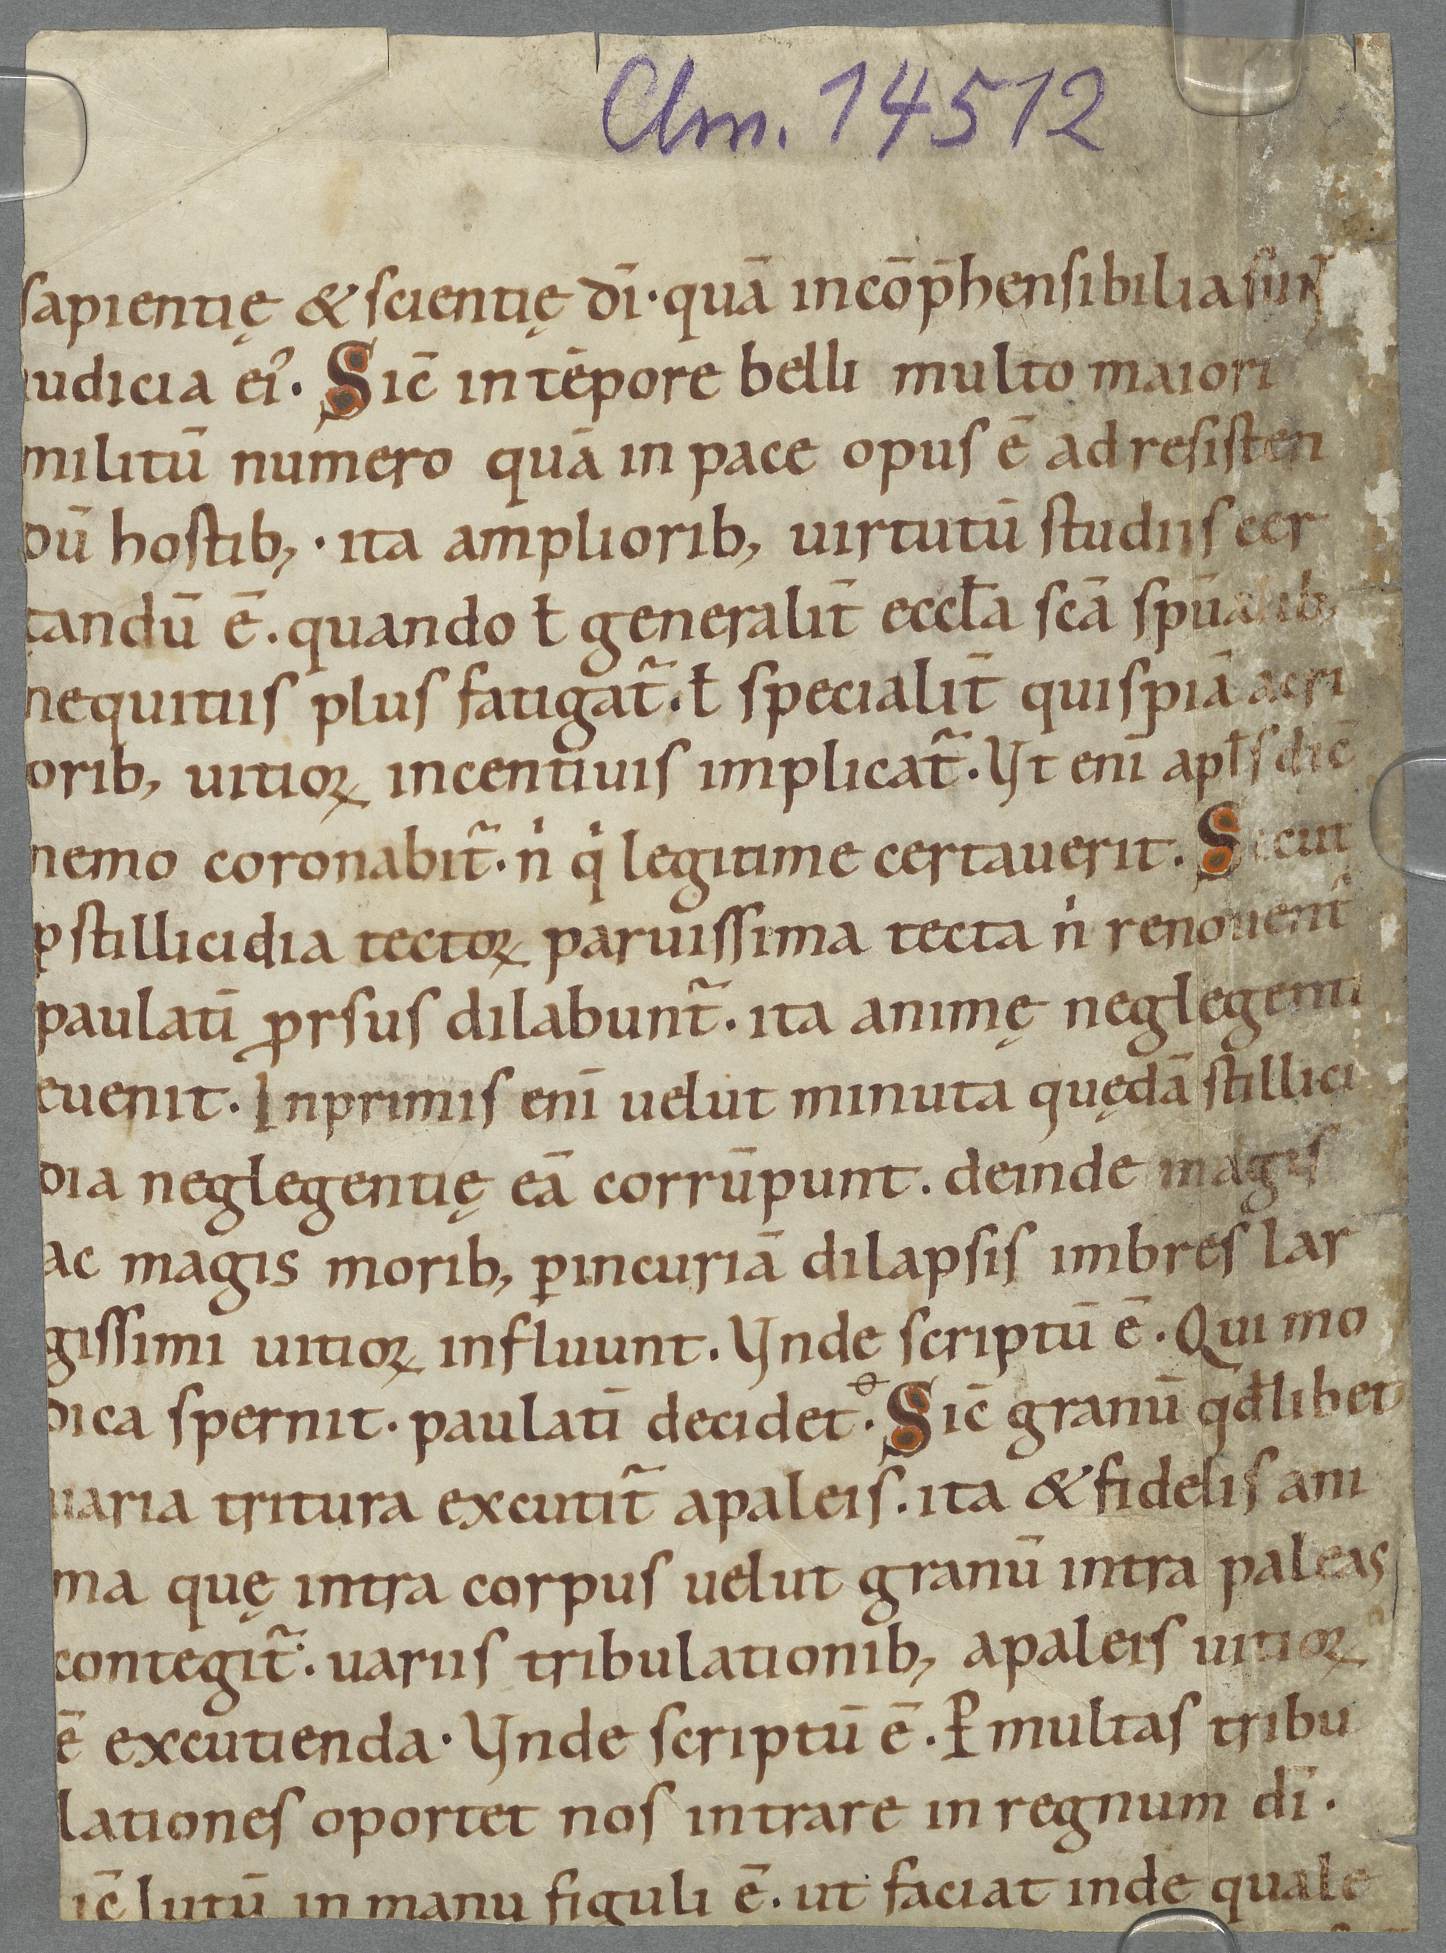 Clm. 14512
sapientię & scientię dī· quā incōp̄hensibilia sunt
iudicia ei᾽· Sic̄ in tēpore belli multo maiori
militū numero quā in pace opus ē ad resisten
dū hostib;· ita ampliorib; uirtutū studiis cer
tandū ē. quando ł generalit̄ eccła scā spūalib;
nequitiis plus fatigat᷑. ł specialit̄ quispiā acri
orib; uitioꝝ incentiuis implicat᷑. Vt enī apłs dic̄
nemo coronabit᷑· nͥ qͥ legitime certauerit. Sicut
ꝑ stillicidia tectoꝝ paruissima tecta nͥ renouent᷑
paulatī ꝓrsus dilabunt᷑. ita animę neglegenti
euenit. Inprimis enī uelut minuta quędā stillici
dia neglegentię eā corrūpunt. deinde magis
ac magis morib; ꝑ incuriā dilapsis imbres lar
gissimi uitioꝝ influunt. Vnde scriptū ē. Qui mo
dica spernit. paulatī decidet. Sic̄ granū qđlibet
uaria tritura excutit᷑ a paleis. ita & fidelis ani
ma quę intra corpus uelut granū intra paleas
contegit᷑. uariis tribulationib; a paleis uitioꝝ
ē excutienda. Vnde scriptū ē. Ꝑ multas tribu
lationes oportet nos intrare in regnum dī.
ic̄ lutū in manu figuli ē. ut faciat inde quale